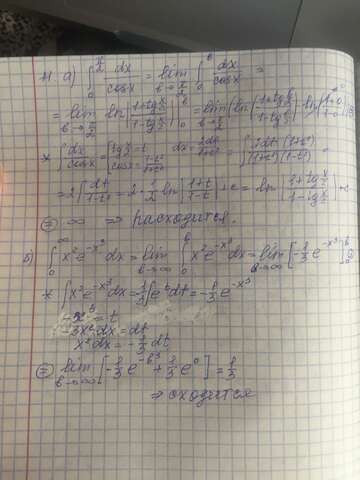 11 а) ∫₀^{π/2} dx/cosx = lim_{b→π/2} ∫₀^b dx/cosx =
= lim_{b→π/2} ln|(1+tg x/2)/(1-tg x/2)| |₀^b = lim_{b→π/2} (ln|(1+tg b/2)/(1-tg b/2)| - ln|(1+0)/(1-0)|) ⊜
* ∫ dx/cosx = [tg x/2 = t   dx = 2dt/(1+t²)   cosx = (1-t²)/(1+t²)] = ∫ 2dt (1+t²)/((1+t²)(1-t²)) =
= 2∫ dt/(1-t²) = 2·1/2 ln|(1+t)/(1-t)| + c = ln|(1+tg x/2)/(1-tg x/2)| + c
⊜ ∞ ⇒ расходится.
б) ∫₀^∞ x² e^{-x³} dx = lim_{b→∞} ∫₀^b x² e^{-x³} dx = lim_{b→∞} [-1/3 e^{-x³} |₀^b]
* ∫ x² e^{-x³} dx = -1/3 ∫ e^t dt = -1/3 e^{-x³}
-x³ = t
-3x² dx = dt
x² dx = -1/3 dt
⊜ lim_{b→∞} [-1/3 e^{-b³} + 1/3 e⁰] = 1/3
⇒ сходится